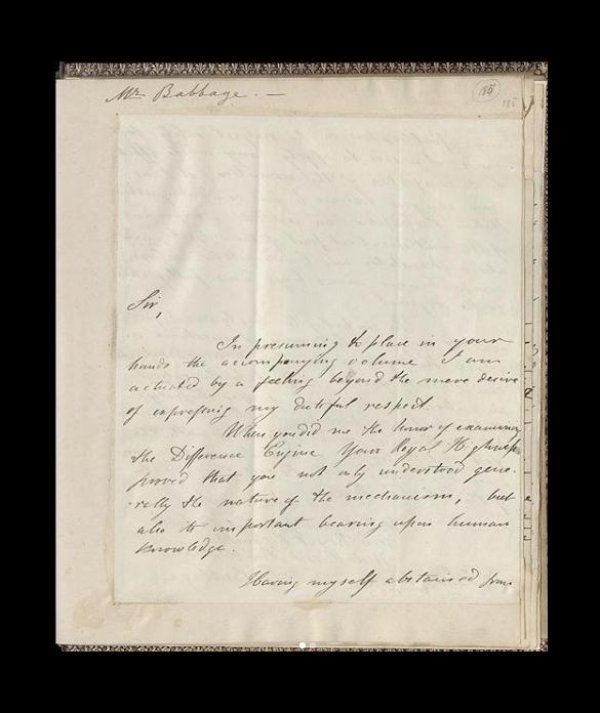 Mr. Babbage. —
185
185
Sir,
In presuming to place in your
hands the accompanying volume I am
actuated by a feeling beyond the mere desire
of expressing my dutiful respect
When you did me the honor of examining
the Difference Engine Your Royal Highness
proved that you not only understood gene-
-rally the nature of the mechanism, but
also its important bearing upon human
knowledge.
Having myself abstained from